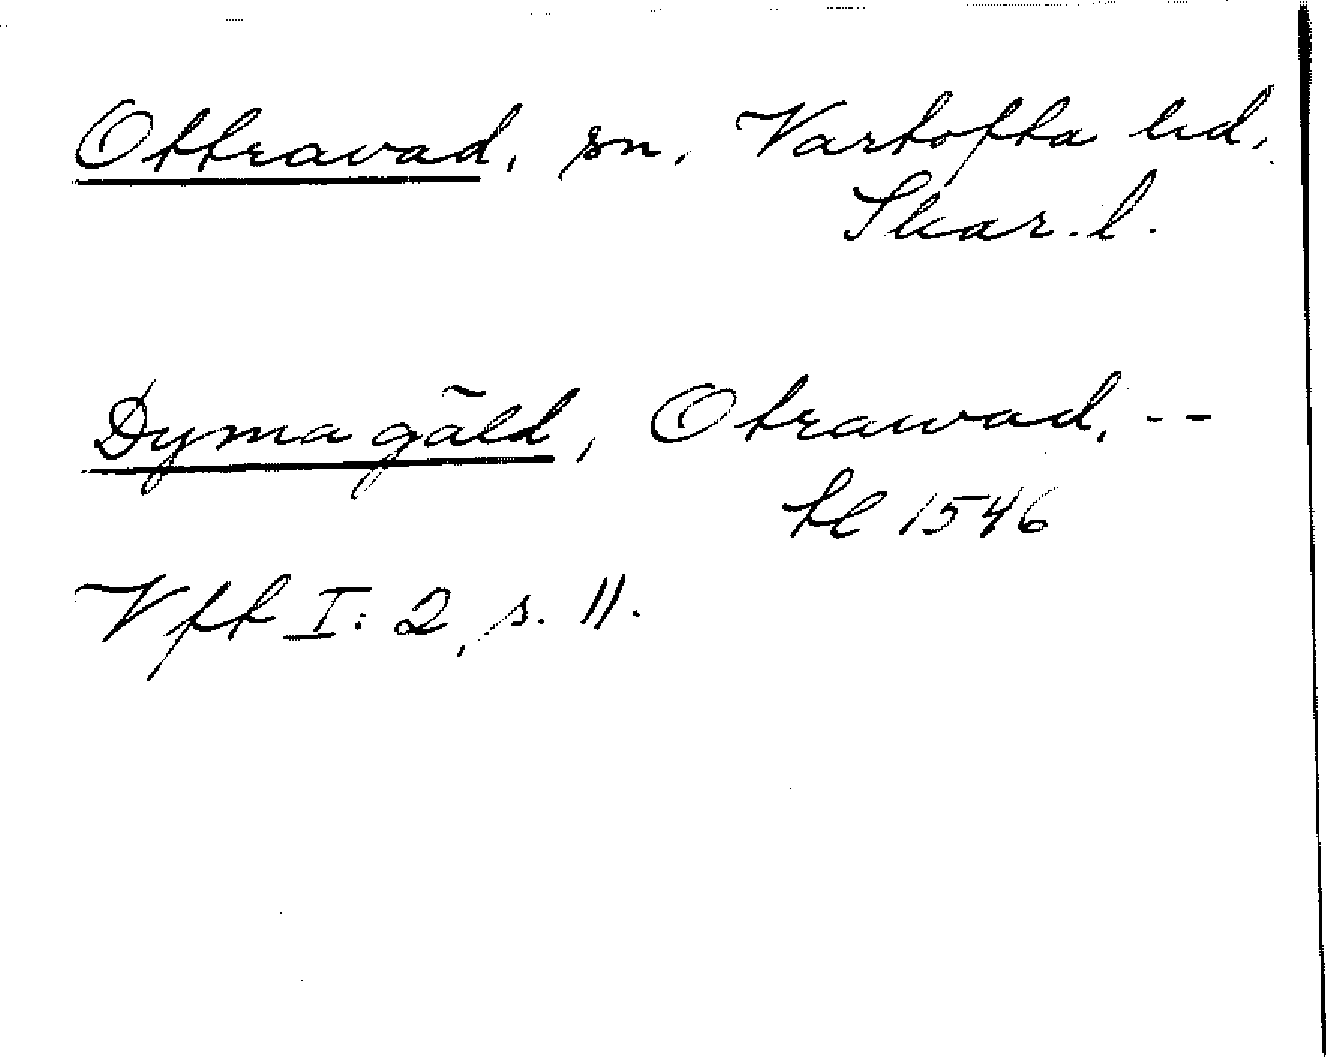 Ottravad, sn, Vartofta hd,
Skar. l.
Dyma gäld, Otrawad, --
tl 1546
Vft I: 2, s. 11.